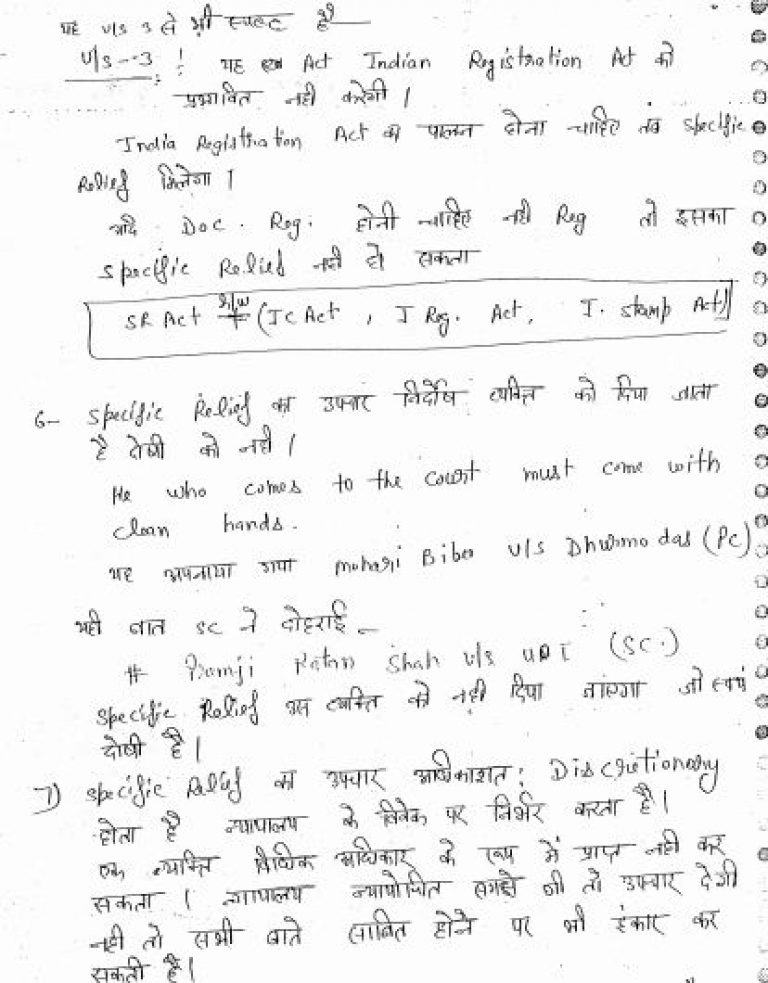 यह u/s 3 से भी स्पष्ट है
U/s - 3 ! यह Act Indian Registration Act को
प्रभावित नही करेगी ।
India Registration Act का पालन होना चाहिए तब specific
Relief मिलेगा ।
यदि Doc. Reg. होनी चाहिए नही Reg तो इसका
specific Relief नही हो सकता
SR Act r/w (IC Act, I Reg. Act, I. stamp Act)
6- specific Relief का उपचार निर्दोष व्यक्ति को दिया जाता
है दोषी को नही ।
He who comes to the court must come with
clean hands.
यह अपनाया गया Mohari Bibee v/s Dhurmodas (PC)
यही बात SC ने दोहराई -
# Ratan Shah v/s UOI (SC.)
specific Relief उस व्यक्ति को नही दिया जाएगा जो स्वयं
दोषी है ।
7) specific Relief का उपचार अधिकांशत: Discretionary
होता है न्यायालय के विवेक पर निर्भर करता है ।
एक व्यक्ति विधिक अधिकार के रूप में प्राप्त नही कर
सकता । न्यायालय न्यायोचित समझे गी तो उपचार देगी
नही तो सभी बाते साबित होने पर भी इंकार कर
सकती है ।